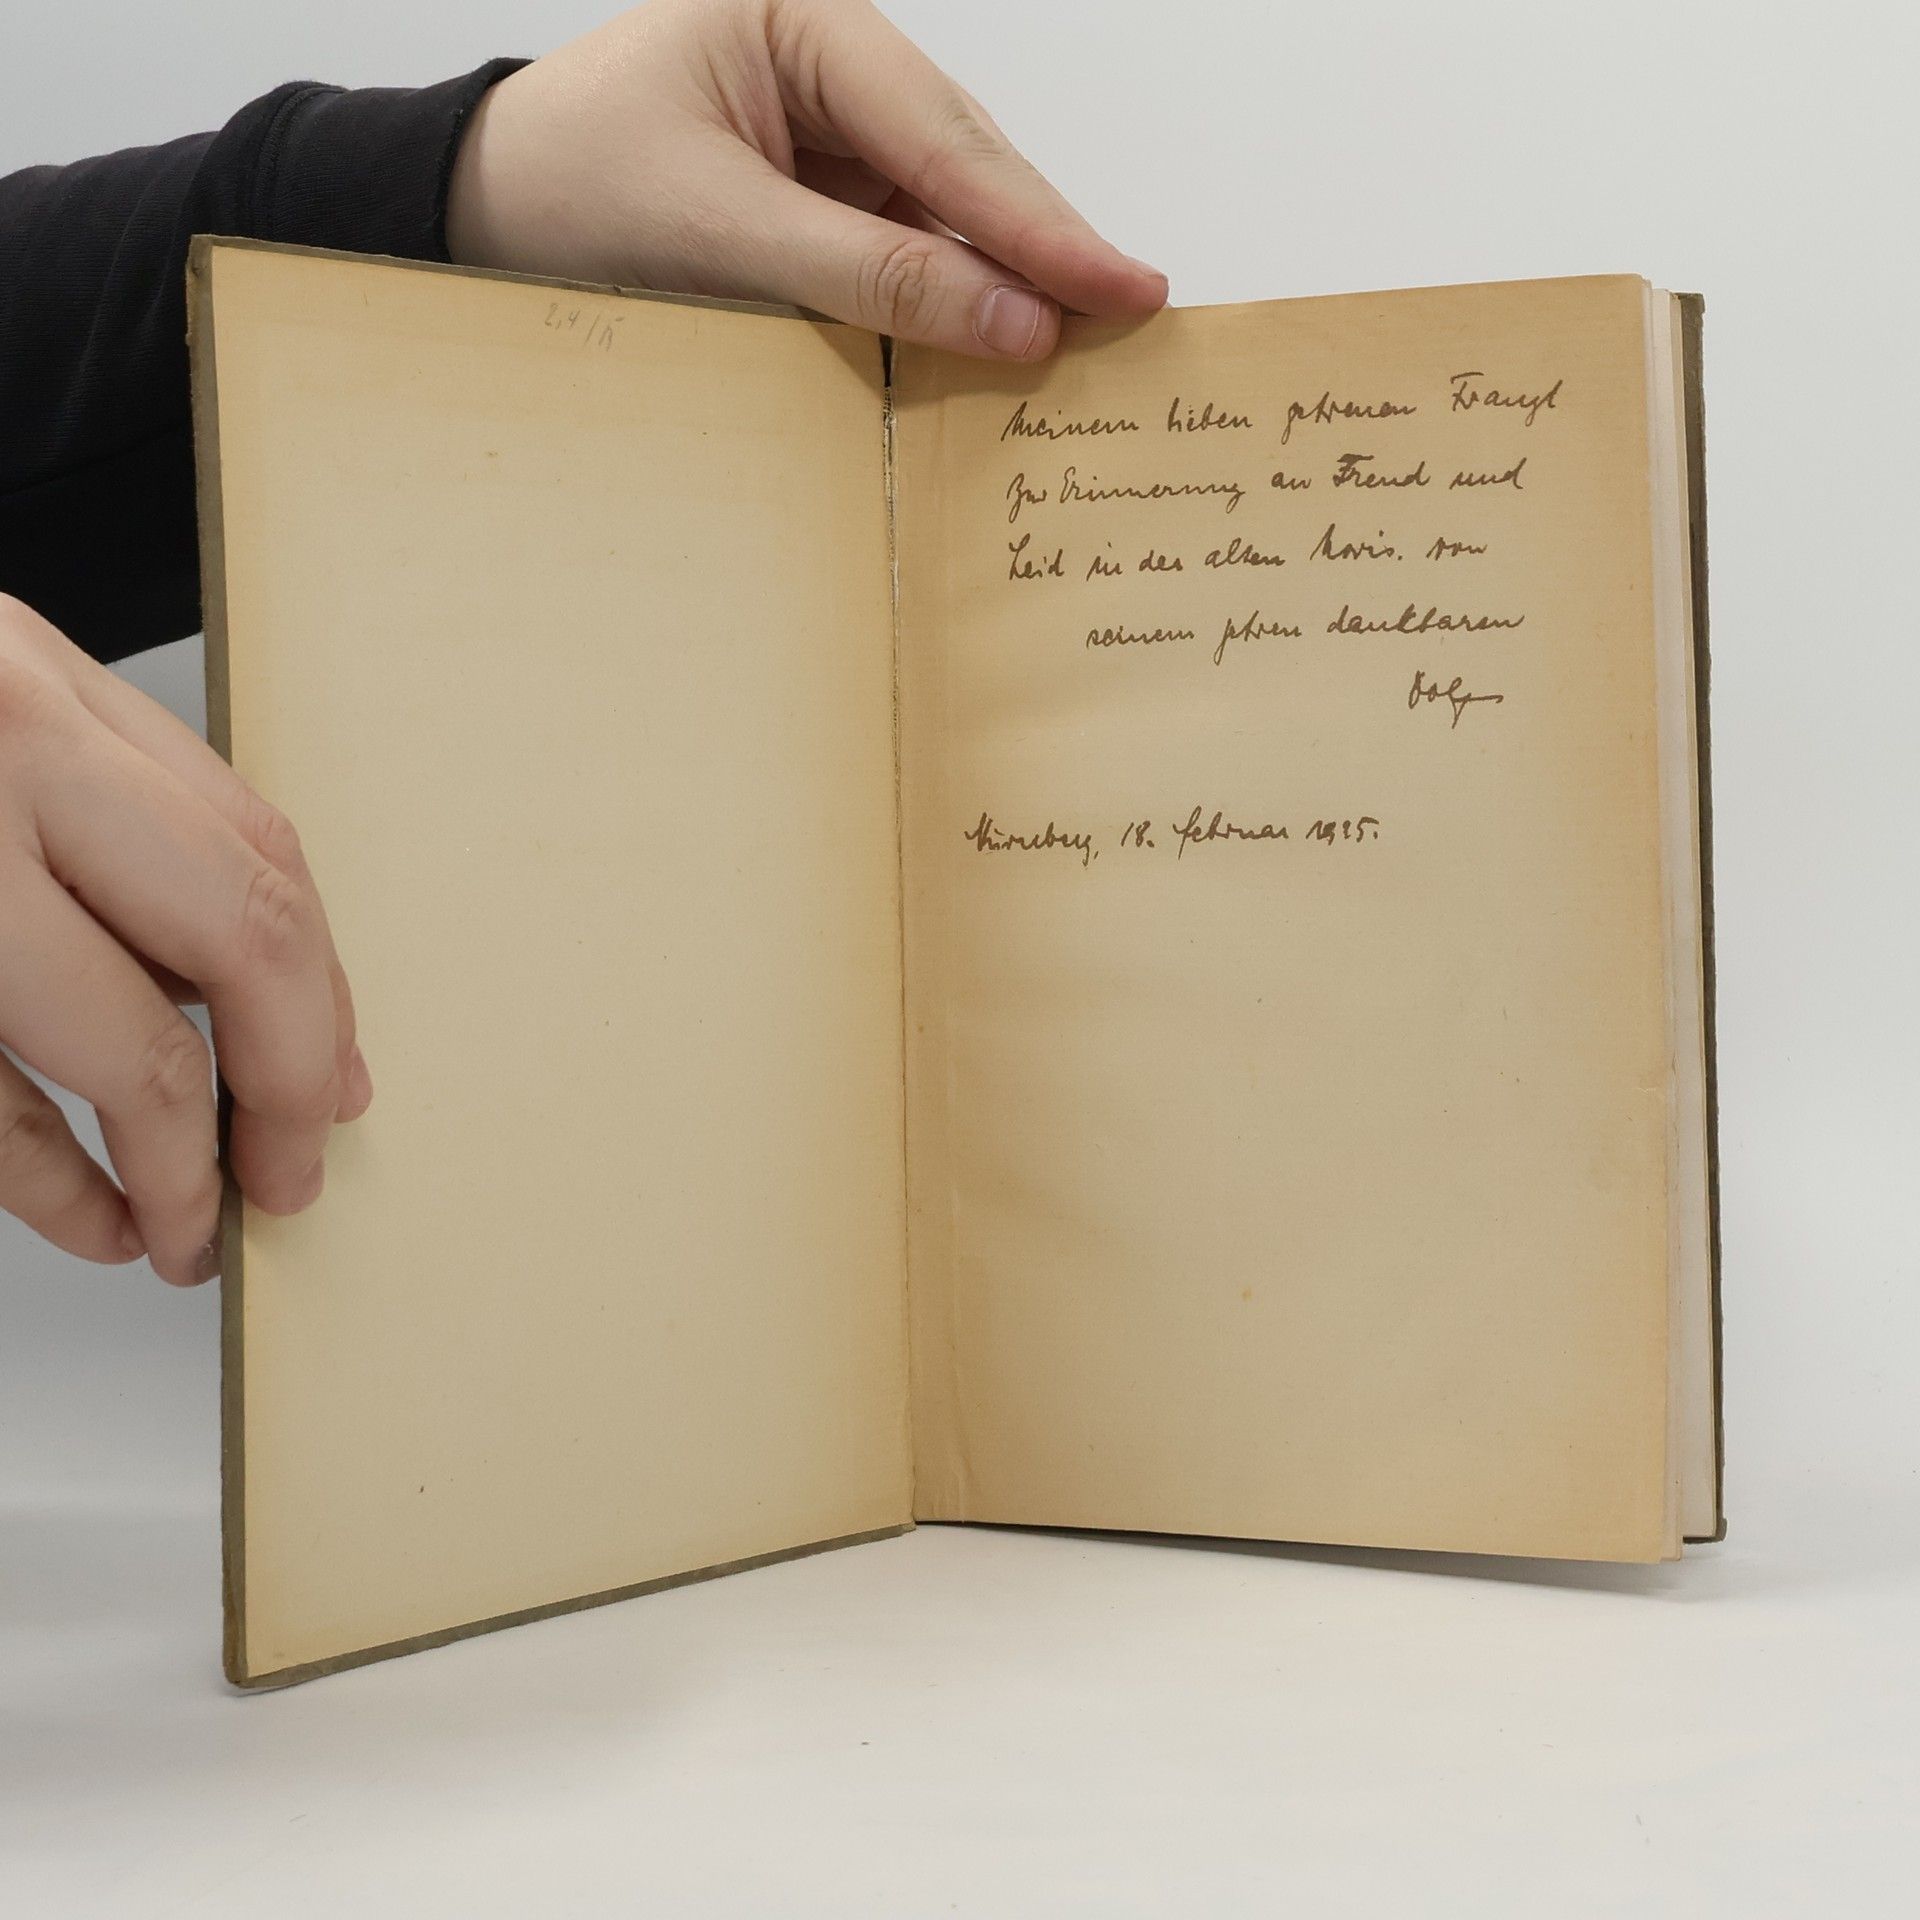 2,4/
Meinem lieben getreuen Franzl
Zur Erinnerung an Freud und
Leid in der alten Noris. von
seinem getreu dankbaren
Nürnberg, 18. Februar 1925.